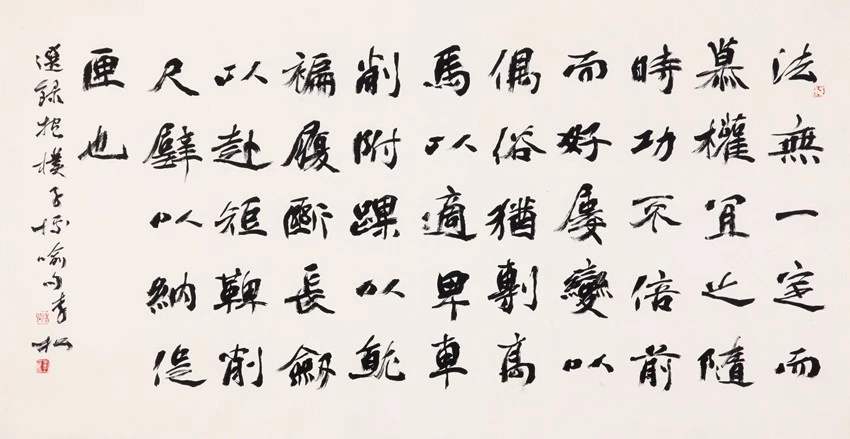 法無一定而
慕權宜之隨
時功不倍前
而好屡變以
偶俗猶剸高
馬以適卑車
削附踝以就
褊履斷長劔
以赴短鞞削
尺璧以納促
匣也
選録抱樸子博喻句李松